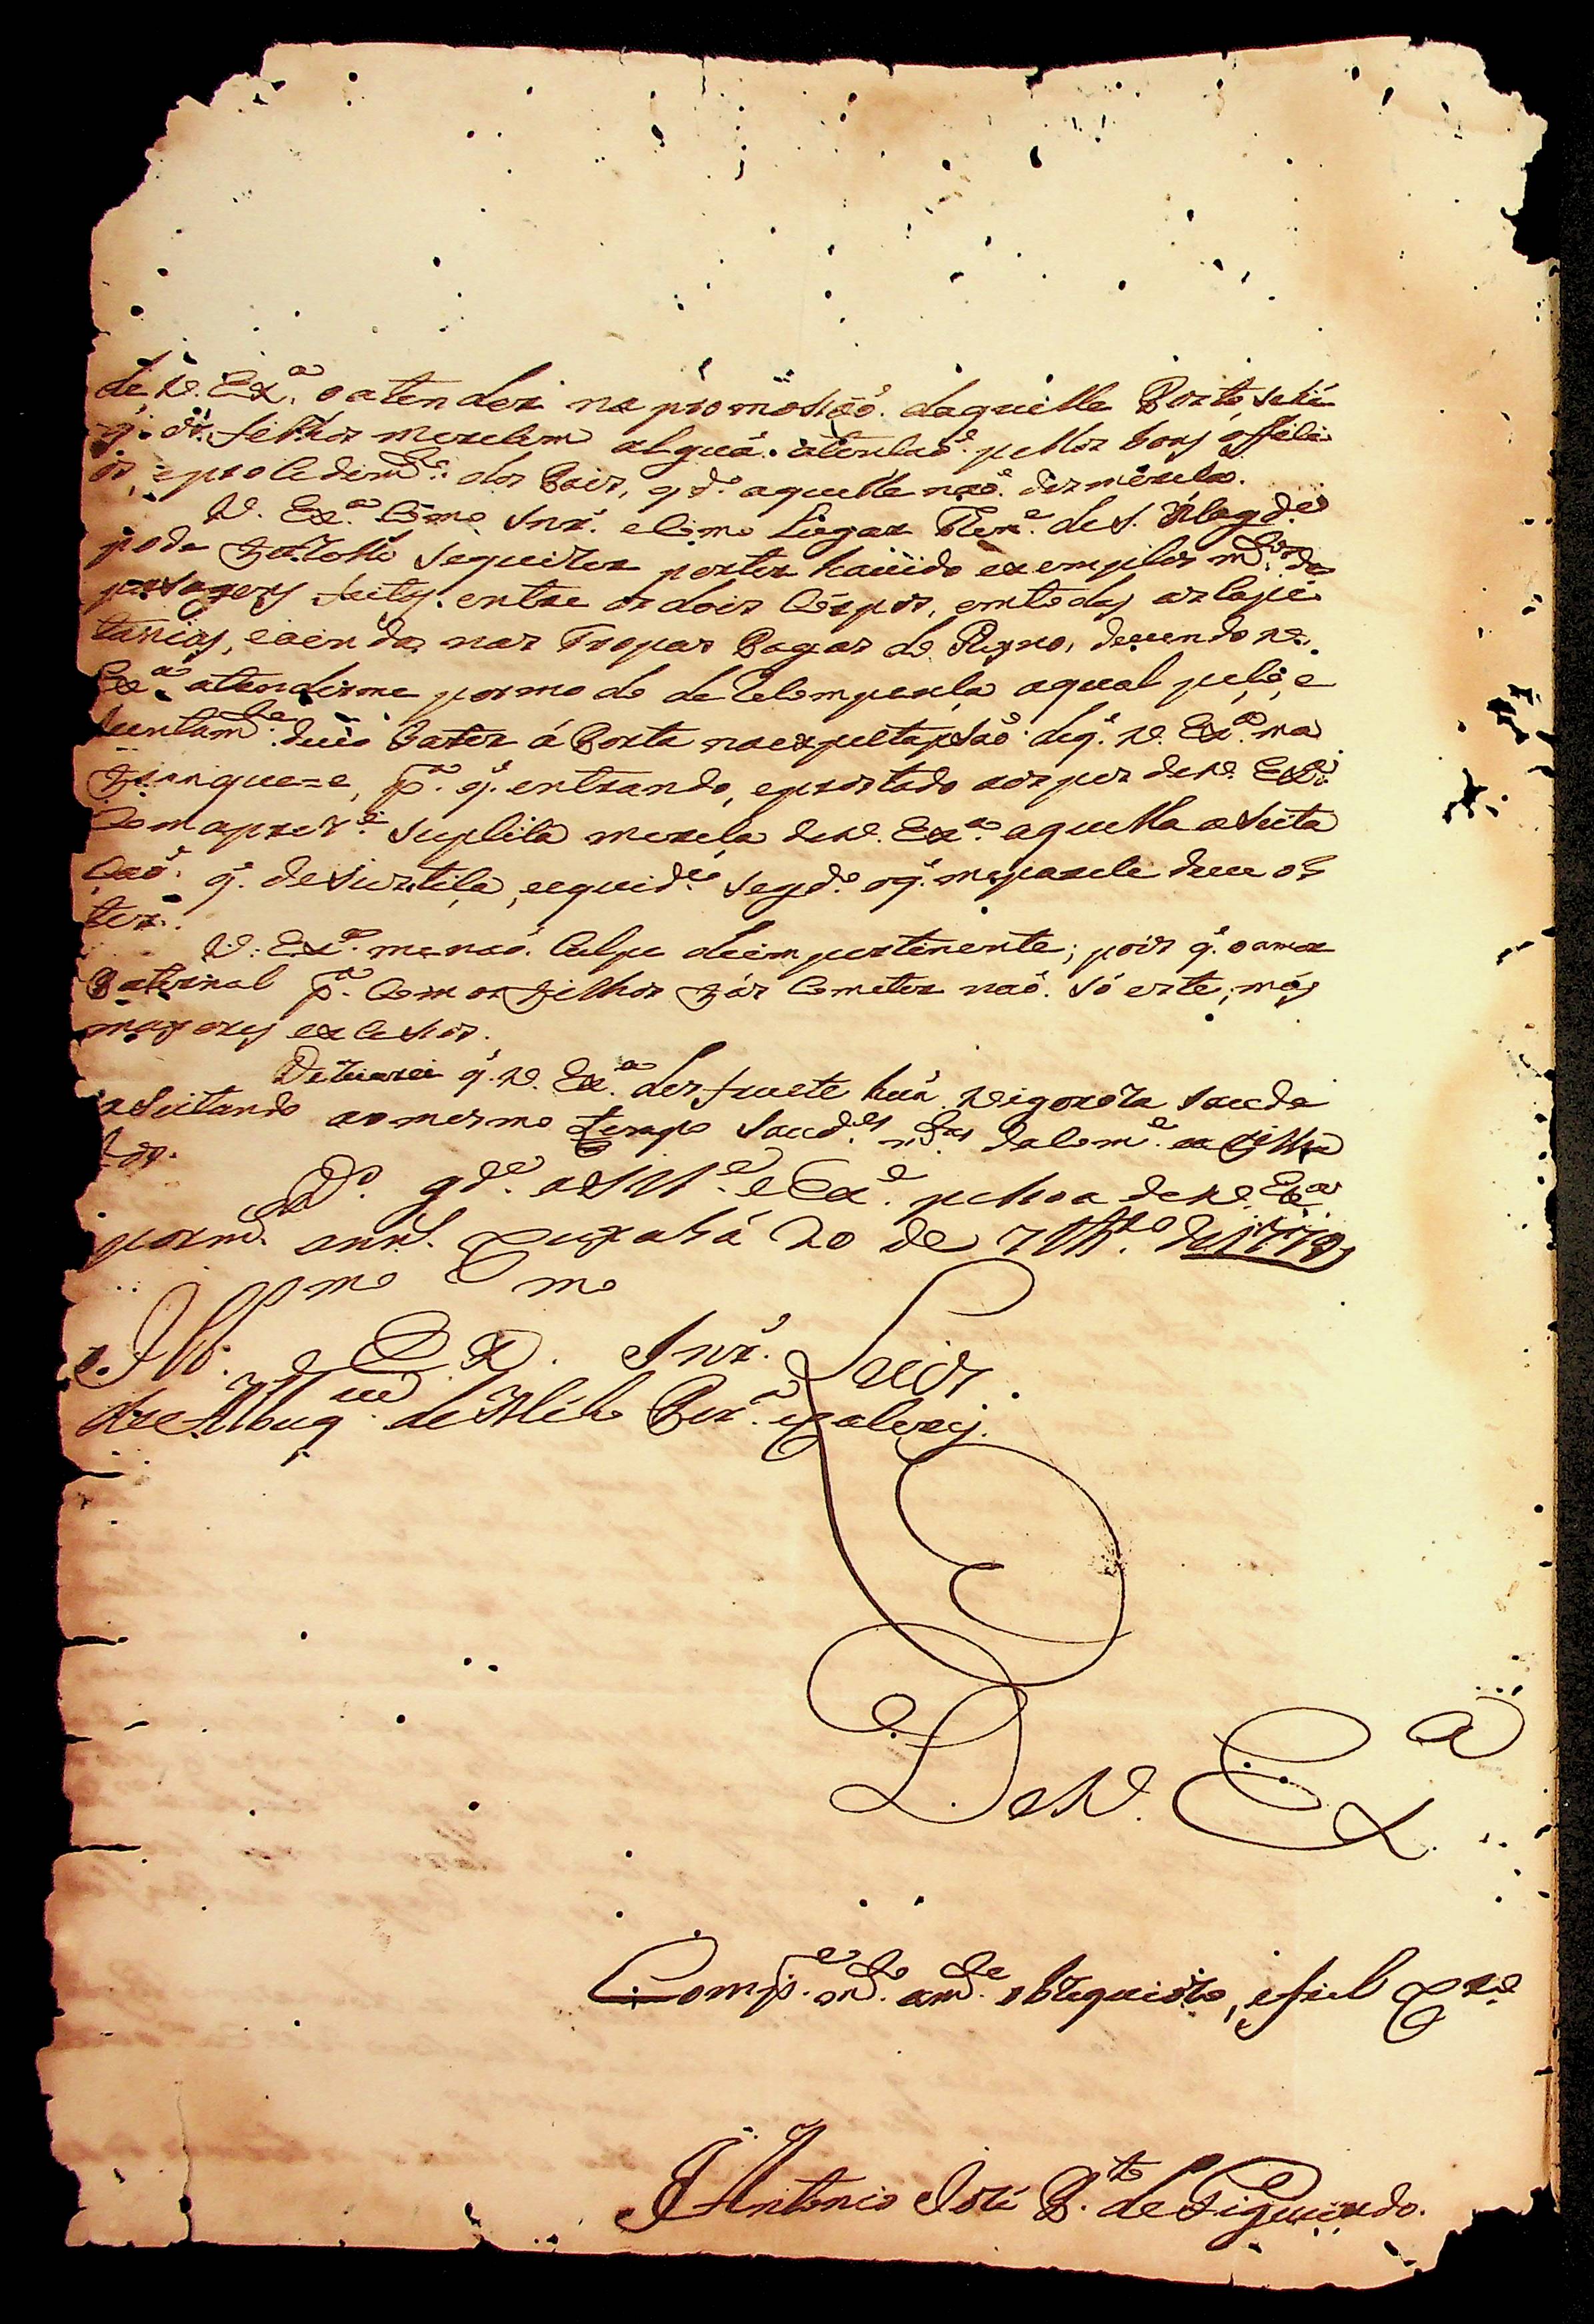 de V. Ex.ª o atender na promoSsaõ daquelle Posto, se he
q. os filhos merecem alguã atençaõ pellos bons officî
os, e procedim.to dos Pais, q.do aquelle naõ desmereça.
V. Ex.ª como Snr. e como Lugar Ten.e de S. Mag.de
pode fazello sequizer por ter havido exemplos m.tos de
pasagens feitas entre os dois Corpos, em todas as Capi
tanias, e aenda nas Tropas Pagas do Reyno, devendo V.
Ex.ª atenderme por modo de recompença a qual peço, e
Juntam.te devo bater á Porta na expectasaõ de q. V. Ex.ª ma
franquee, p.ª q. entrando, e prostado aos pes de V. Ex.ª
Com a prez.e suplica mereça de V. Ex.ª aquella aSeita
Caõ q. de Justiça, e equid.e seg.do o q. me parece deve ob
ter.
V. Ex.ª me naõ Culpe de impertinente; pois q. o amor
Paternal p.ª Com os filhos fas Cometer naõ só este, mas
mayores exceSsos.
Dezejarei q. V. Ex.ª desfrute huã vigoroza saude
aSeitando ao mesmo tempo Saud.es m.tas da Com.e e filha
D.s g.de a Ill.e e Ex.e peSsoa de V. Ex.ª
por m.s ann.s Cuyabá 20 de 7br.o de 1779
Ill.mo Ex.mo Snr. Luis
de Albuq.ue de Mello Per.ª e Caceres.
De V. Ex.ª
Comp.e m.to am.te obzequiozo, e fiel C.
Antonio José P.to de Figueiredo.